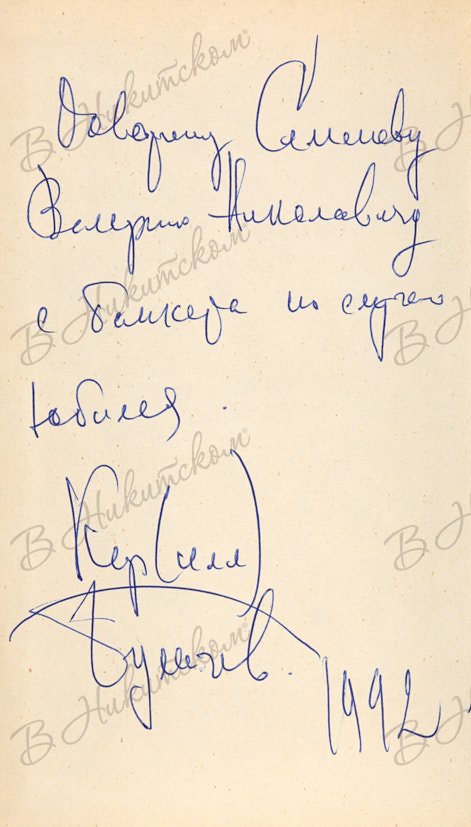 Товарищу Семенову
Валерию Николаевичу
с банкета по случаю
юбилея.
Кир(илл)
Булычев.
1992
В Никитском
В Никитском
В Никитском
В Никитском